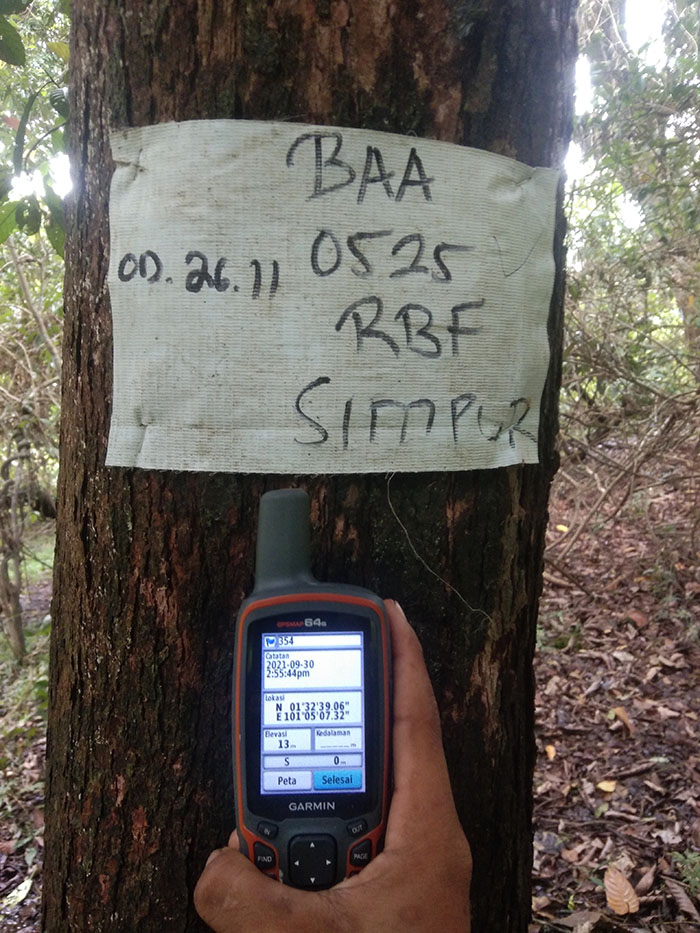 BAA
OD. 26.11 0525
RBF
SIMPUR
GPSMAP 64s
354
Catatan
2021-09-30
2:55:44pm
Lokasi
N 01°32'39.06"
E 101°05'07.32"
Elevasi Kedalaman
13m _____m
S 0m
Peta Selesai
GARMIN
IN OUT
FIND PAGE